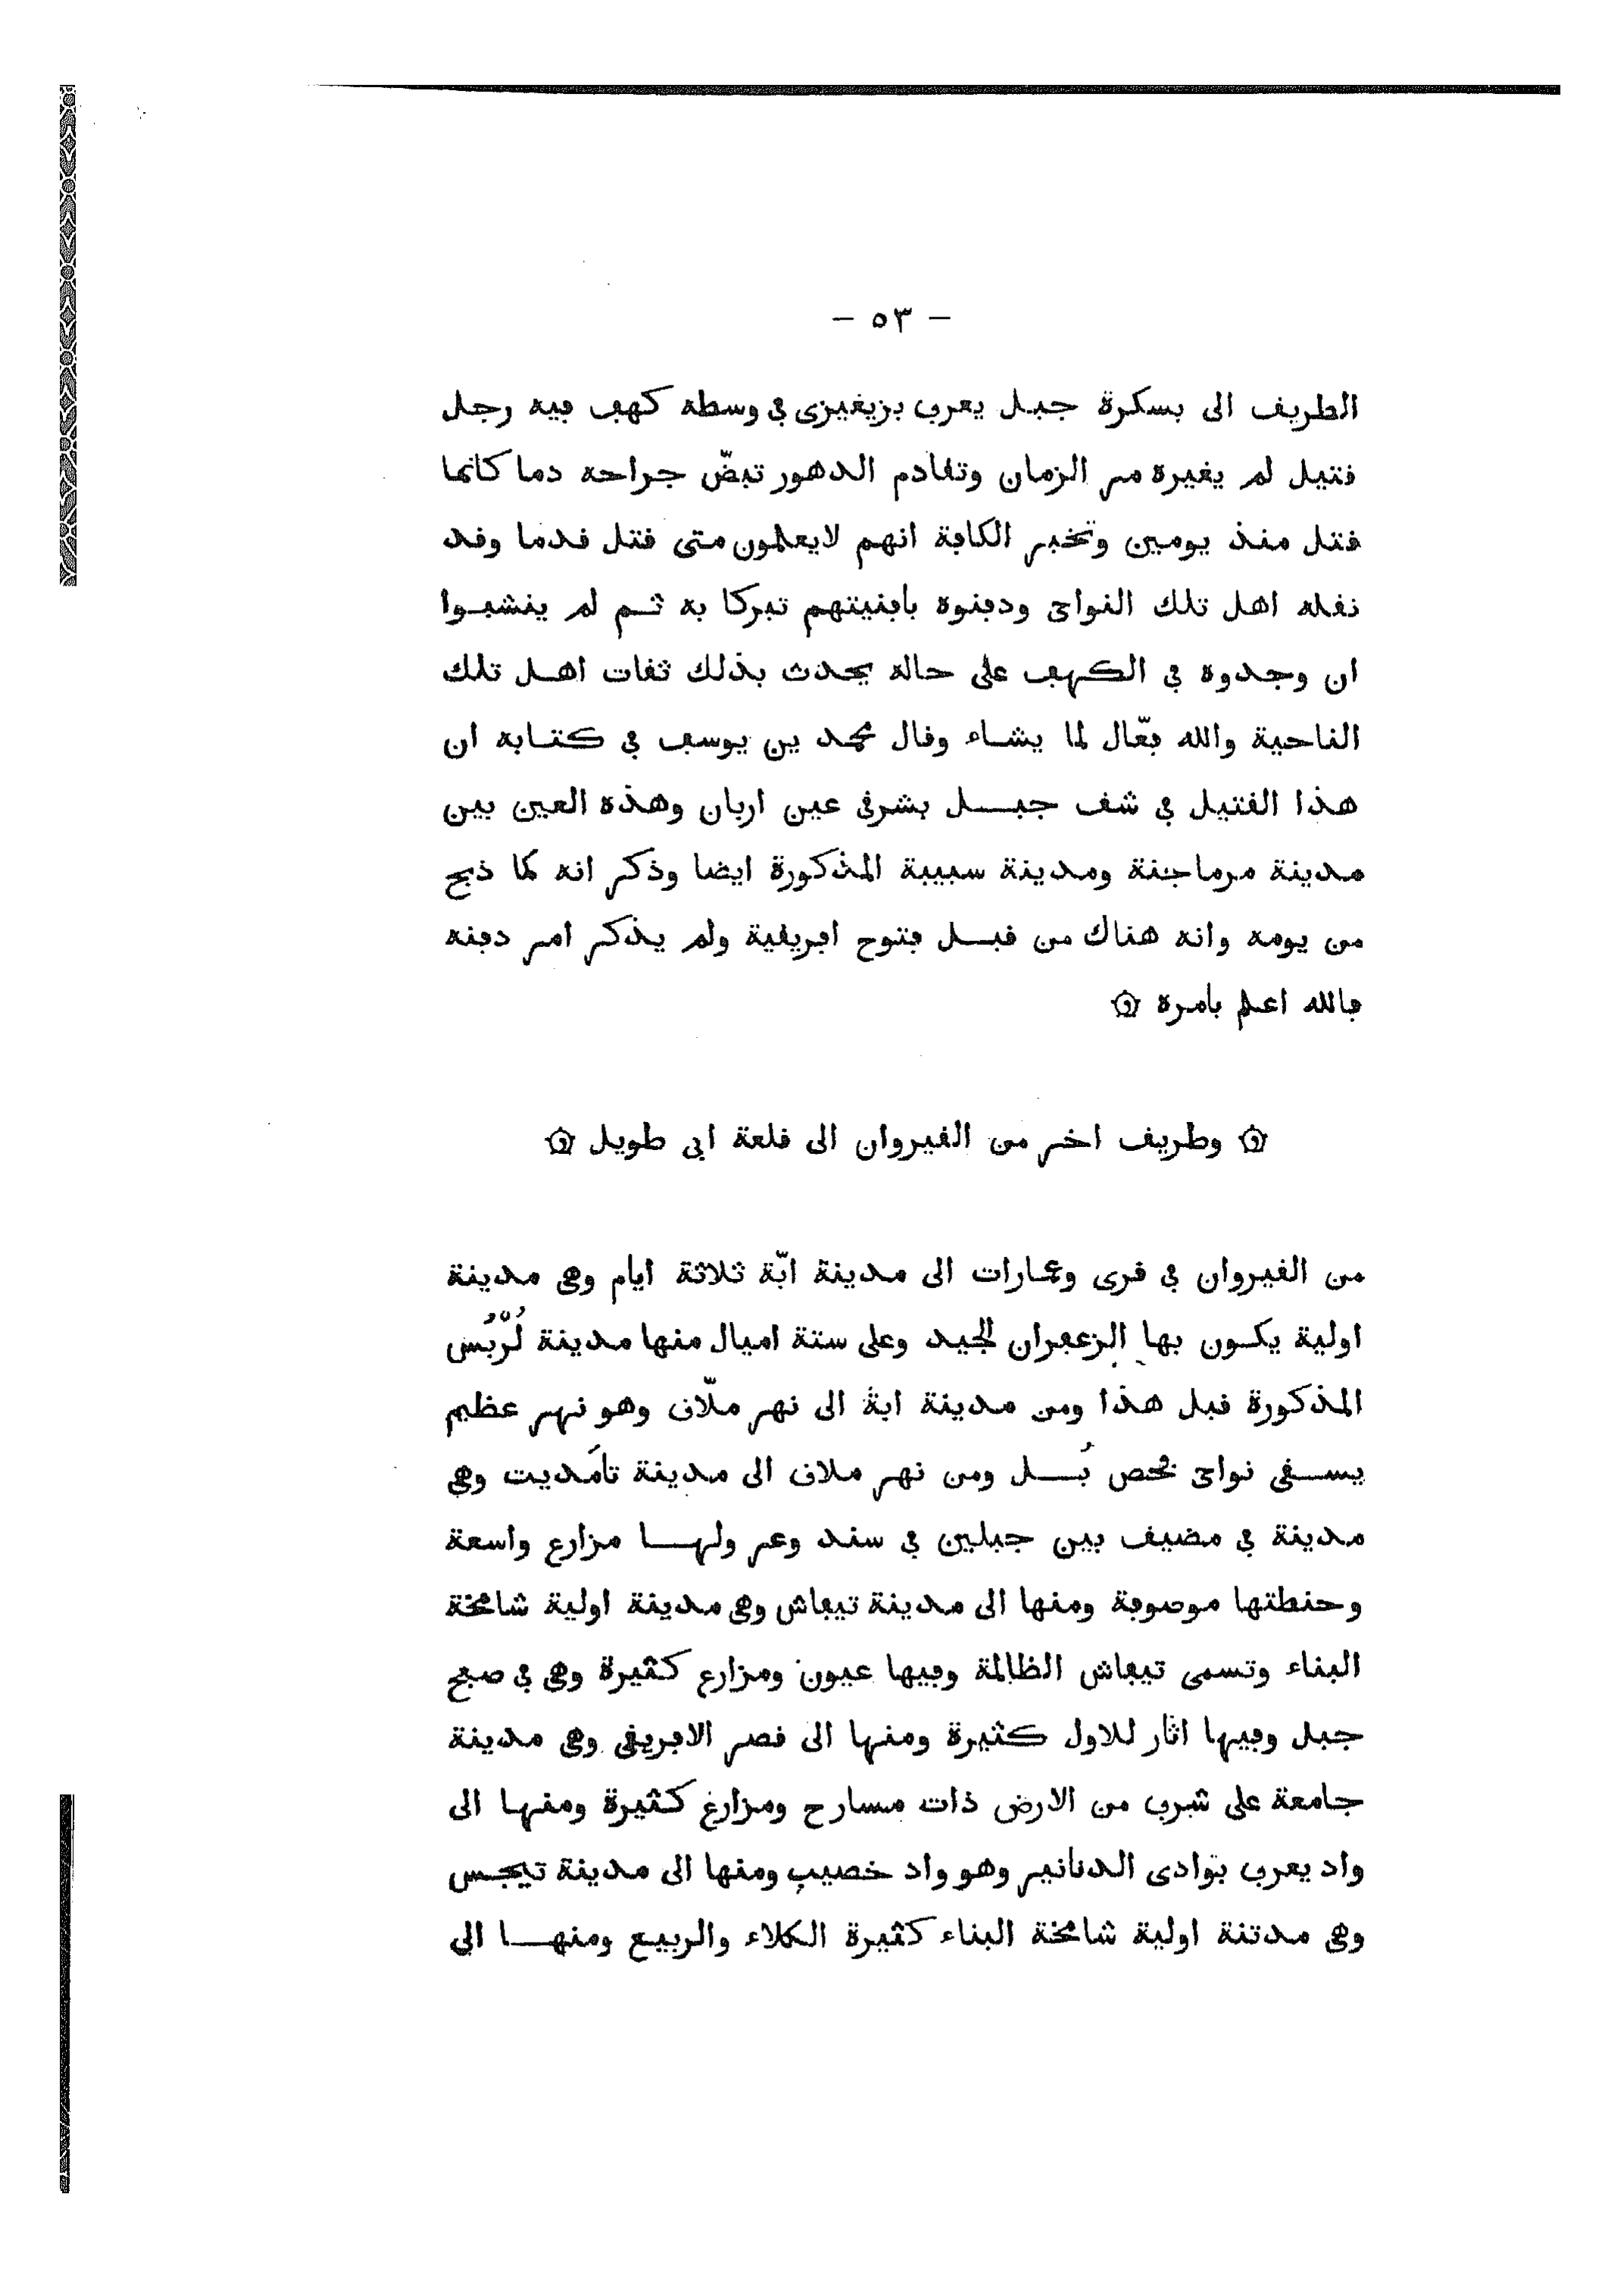 - ٥٣ -
الطريق الى بسكرة جبل يعرف بزيغيزى في وسطه كهف فيه رجل
قتيل لم يغيره مر الزمان وتقادم الدهور تبضّ جراحه دما كانما
قتل منذ يومين وتخبر الكافة انهم لايعلمون متى قتل قدما وقد
نقله اهل تلك النواحى ودفنوه بأفنيتهم تبركا به ثم لم ينشبوا
ان وجدوه في الكهف على حاله يحدث بذلك ثقات اهل تلك
الناحية والله فعّال لما يشاء وقال محمد ين يوسف في كتابه ان
هذا القتيل في شق جبل بشرقى عين اربان وهذه العين بين
مدينة مرماجنة ومدينة سبيبة المذكورة ايضا وذكر انه كما ذبح
من يومه وانه هناك من قبل فتوح افريقية ولم يذكر امر دفنه
فالله اعلم بأمره ۞
۞ وطريق اخر من القيروان الى قلعة ابى طويل ۞
من القيروان في قرى وعمارات الى مدينة ابّة ثلاثة ايام وهى مدينة
اولية يكون بها الزعفران الجيد وعلى ستة اميال منها مدينة لُرّبُس
المذكورة قبل هذا ومن مدينة ابة الى نهر ملّاق وهو نهر عظيم
يسقى نواحى فحص بُل ومن نهر ملاق الى مدينة تامَديت وهى
مدينة في مضيق بين جبلين في سند وعر ولها مزارع واسعة
وحنطتها موصوفة ومنها الى مدينة تيفاش وهى مدينة اولية شامخة
البناء وتسمى تيفاش الظالمة وفيها عيون ومزارع كثيرة وهى في صفح
جبل وفيها اثار للاول كثيرة ومنها الى قصر الافريقى وهى مدينة
جامعة على شرف من الارض ذات مسارح ومزارع كثيرة ومنها الى
واد يعرف بوادى الدنانير وهو واد خصيب ومنها الى مدينة تيجس
وهى مدتنة اولية شامخة البناء كثيرة الكلاء والربيع ومنها الى